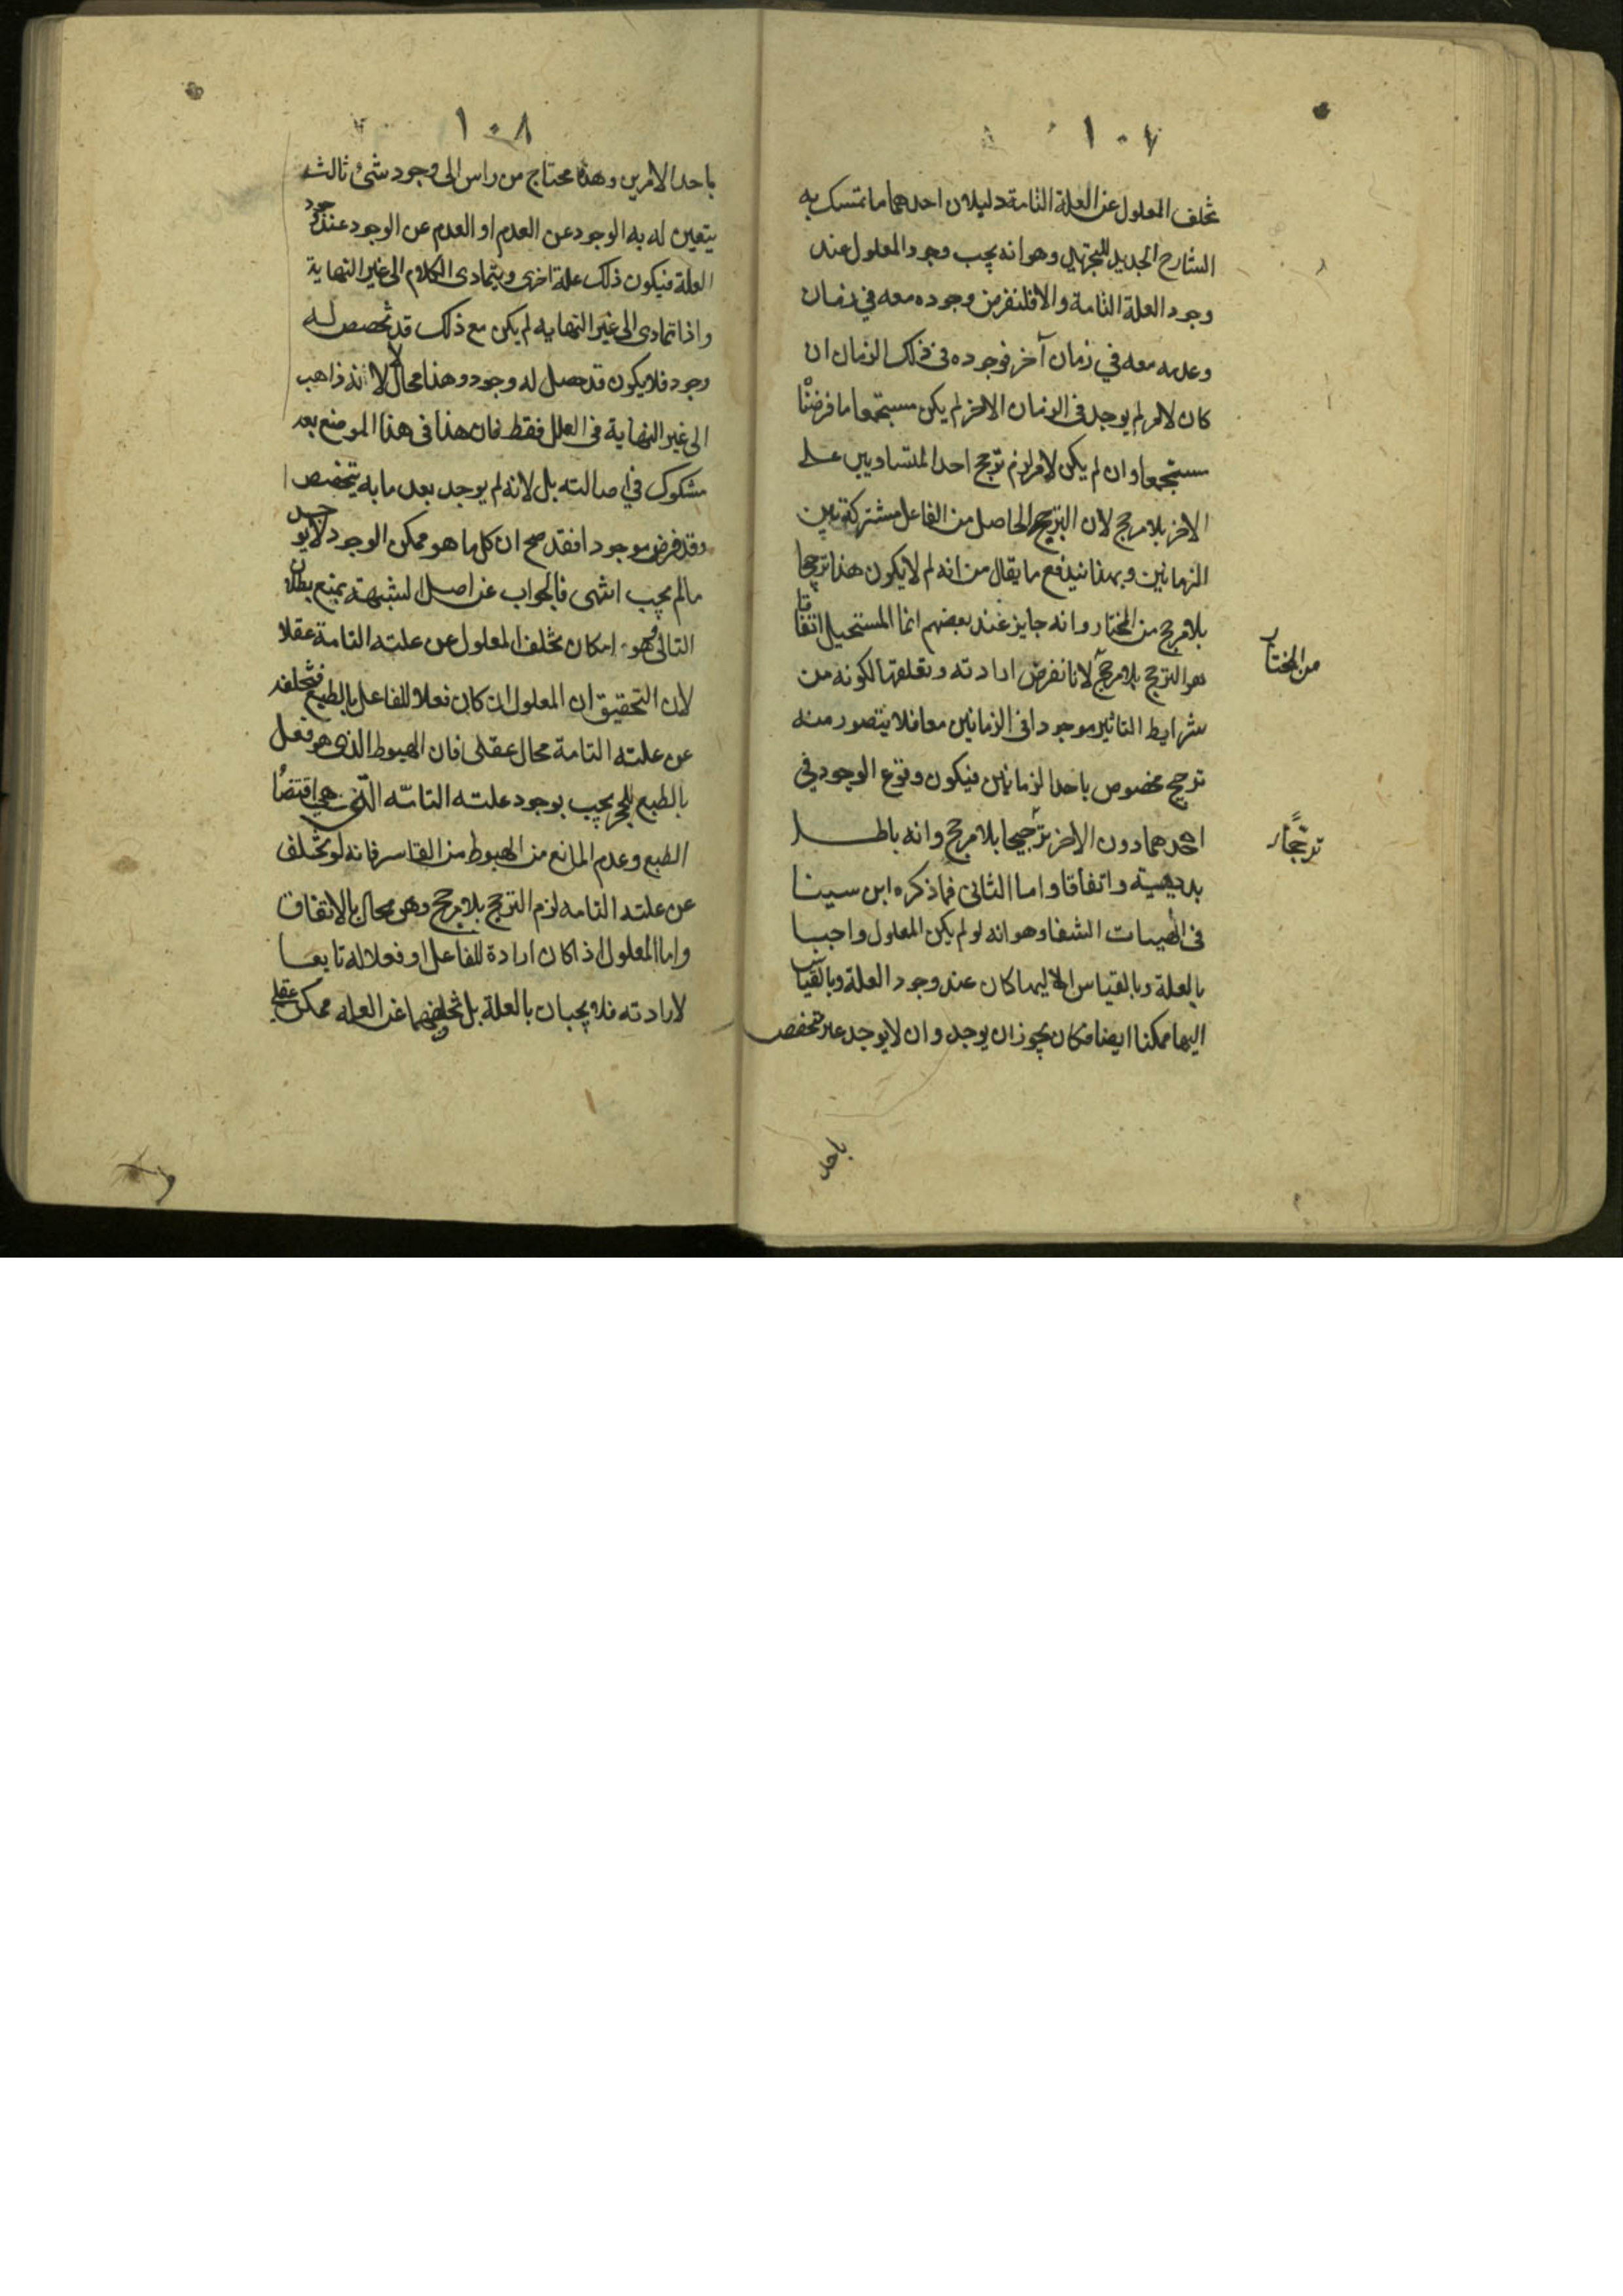 ١٠٧
تخلف المعلول عن العلة التامة دليلان احدهما ما تمسك به
الشارح الجديد للتجريد وهو انه يجب وجود المعلول عند
وجود العلة التامة والا فلنفرض وجوده معه في زمان
وعدمه معه في زمان آخر فوجوده في ذلك الزمان ان
كان لامر لم يوجد في الزمان الاخر لم يكن مستجمعا ما فرضنا
مستجمعا وان لم يكن لامر لزم ترجح احد المتساويين على
الاخر بلا مرجح لان الترجيح الحاصل من الفاعل مشترك بين
الزمانين وبهذا يندفع ما يقال من انه لم لا يكون هذا ترجيحا
بلا مرجح من المختار وانه جايز عند بعضهم انما المستحيل اتفاقا
هو الترجح بلا مرجح لانا نفرض ارادته وتعلقها لكونه من
شرايط التاثير موجودا في الزمانين معا فلا يتصور منه
ترجيح مخصوص باحد الزمانين فيكون وقوع الوجود في
احدهما دون الاخر ترجيحا بلا مرجح وانه باطل
بديهية واتفاقا واما الثاني فما ذكره ابن سينا
في الهيات الشفا وهو انه لو لم يكن المعلول واجبا
بالعلة وبالقياس اليها كان عند وجود العلة وبالقياس
اليها ممكنا ايضا فكان يجوز ان يوجد وان لا يوجد غير متخصص
من المختار
ترجحا
باحد
١٠٨
باحد الامرين وهذا محتاج من راس الى وجود شئ ثالث
يتعين له به الوجود عن العدم او العدم عن الوجود عند وجود
العلة فيكون ذلك علة اخرى ويتمادى الكلام الى غير النهاية
واذا تمادى الى غير النهايه لم يكن مع ذلك قد تخصص له
وجود فلا يكون قد حصل له وجود وهذا محال لا لانه ذاهب
الى غير النهاية في العلل فقط فان هذا في هذا الموضع بعد
مشكوك في احالته بل لانه لم يوجد بعد ما به يتخصص
وقد فرض موجودا فقد صح ان كل ما هو ممكن الوجود لا يوجد
مالم يجب انتهى فالجواب عن اصل الشبهة بمنع بطلان
التالى وهو امكان تخلف المعلول عن علته التامة عقلا
لان التحقيق ان المعلول ان كان فعلا للفاعل بالطبع فتخلفه
عن علته التامة محال عقلى فان الهبوط الذى هو فعل
بالطبع للحجر يجب بوجود علته التامه التى هي اقتضاء
الطبع وعدم المانع من الهبوط من القاسر فانه لو تخلف
عن علته التامه لزم الترجح بلا مرجح وهو محال بالاتفاق
واما المعلول اذا كان ارادة للفاعل او فعلا له تابعا
لارادته فلا يجبان بالعلة بل تخلفهما عن العله ممكن عقلى